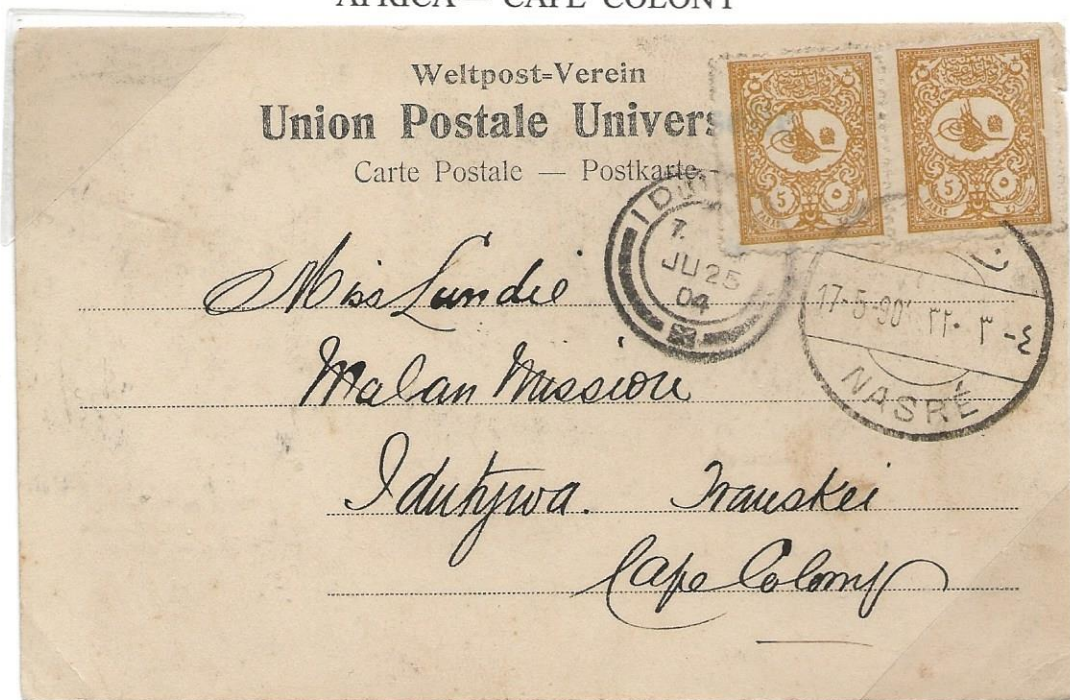 AFRICA — CAPE COLONY
Weltpost=Verein
Union Postale Univers
Carte Postale — Postkarte.
5 ٥
PARAS
5 ٥
PARAS
JU 25
04
17-5-90 ٣٢٠ ٣ -٤
NASRÉ
Miss Lundie
Malan Mission
Idutywa. Transkei
Cape Colony